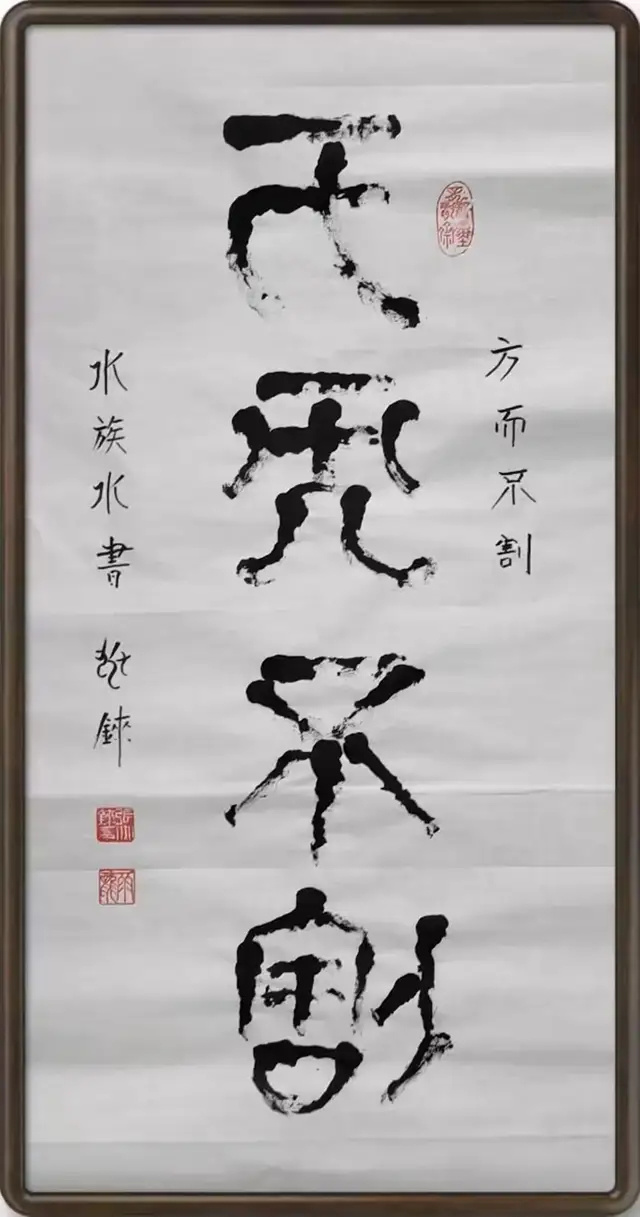 方而不割
方而不割
水族水書